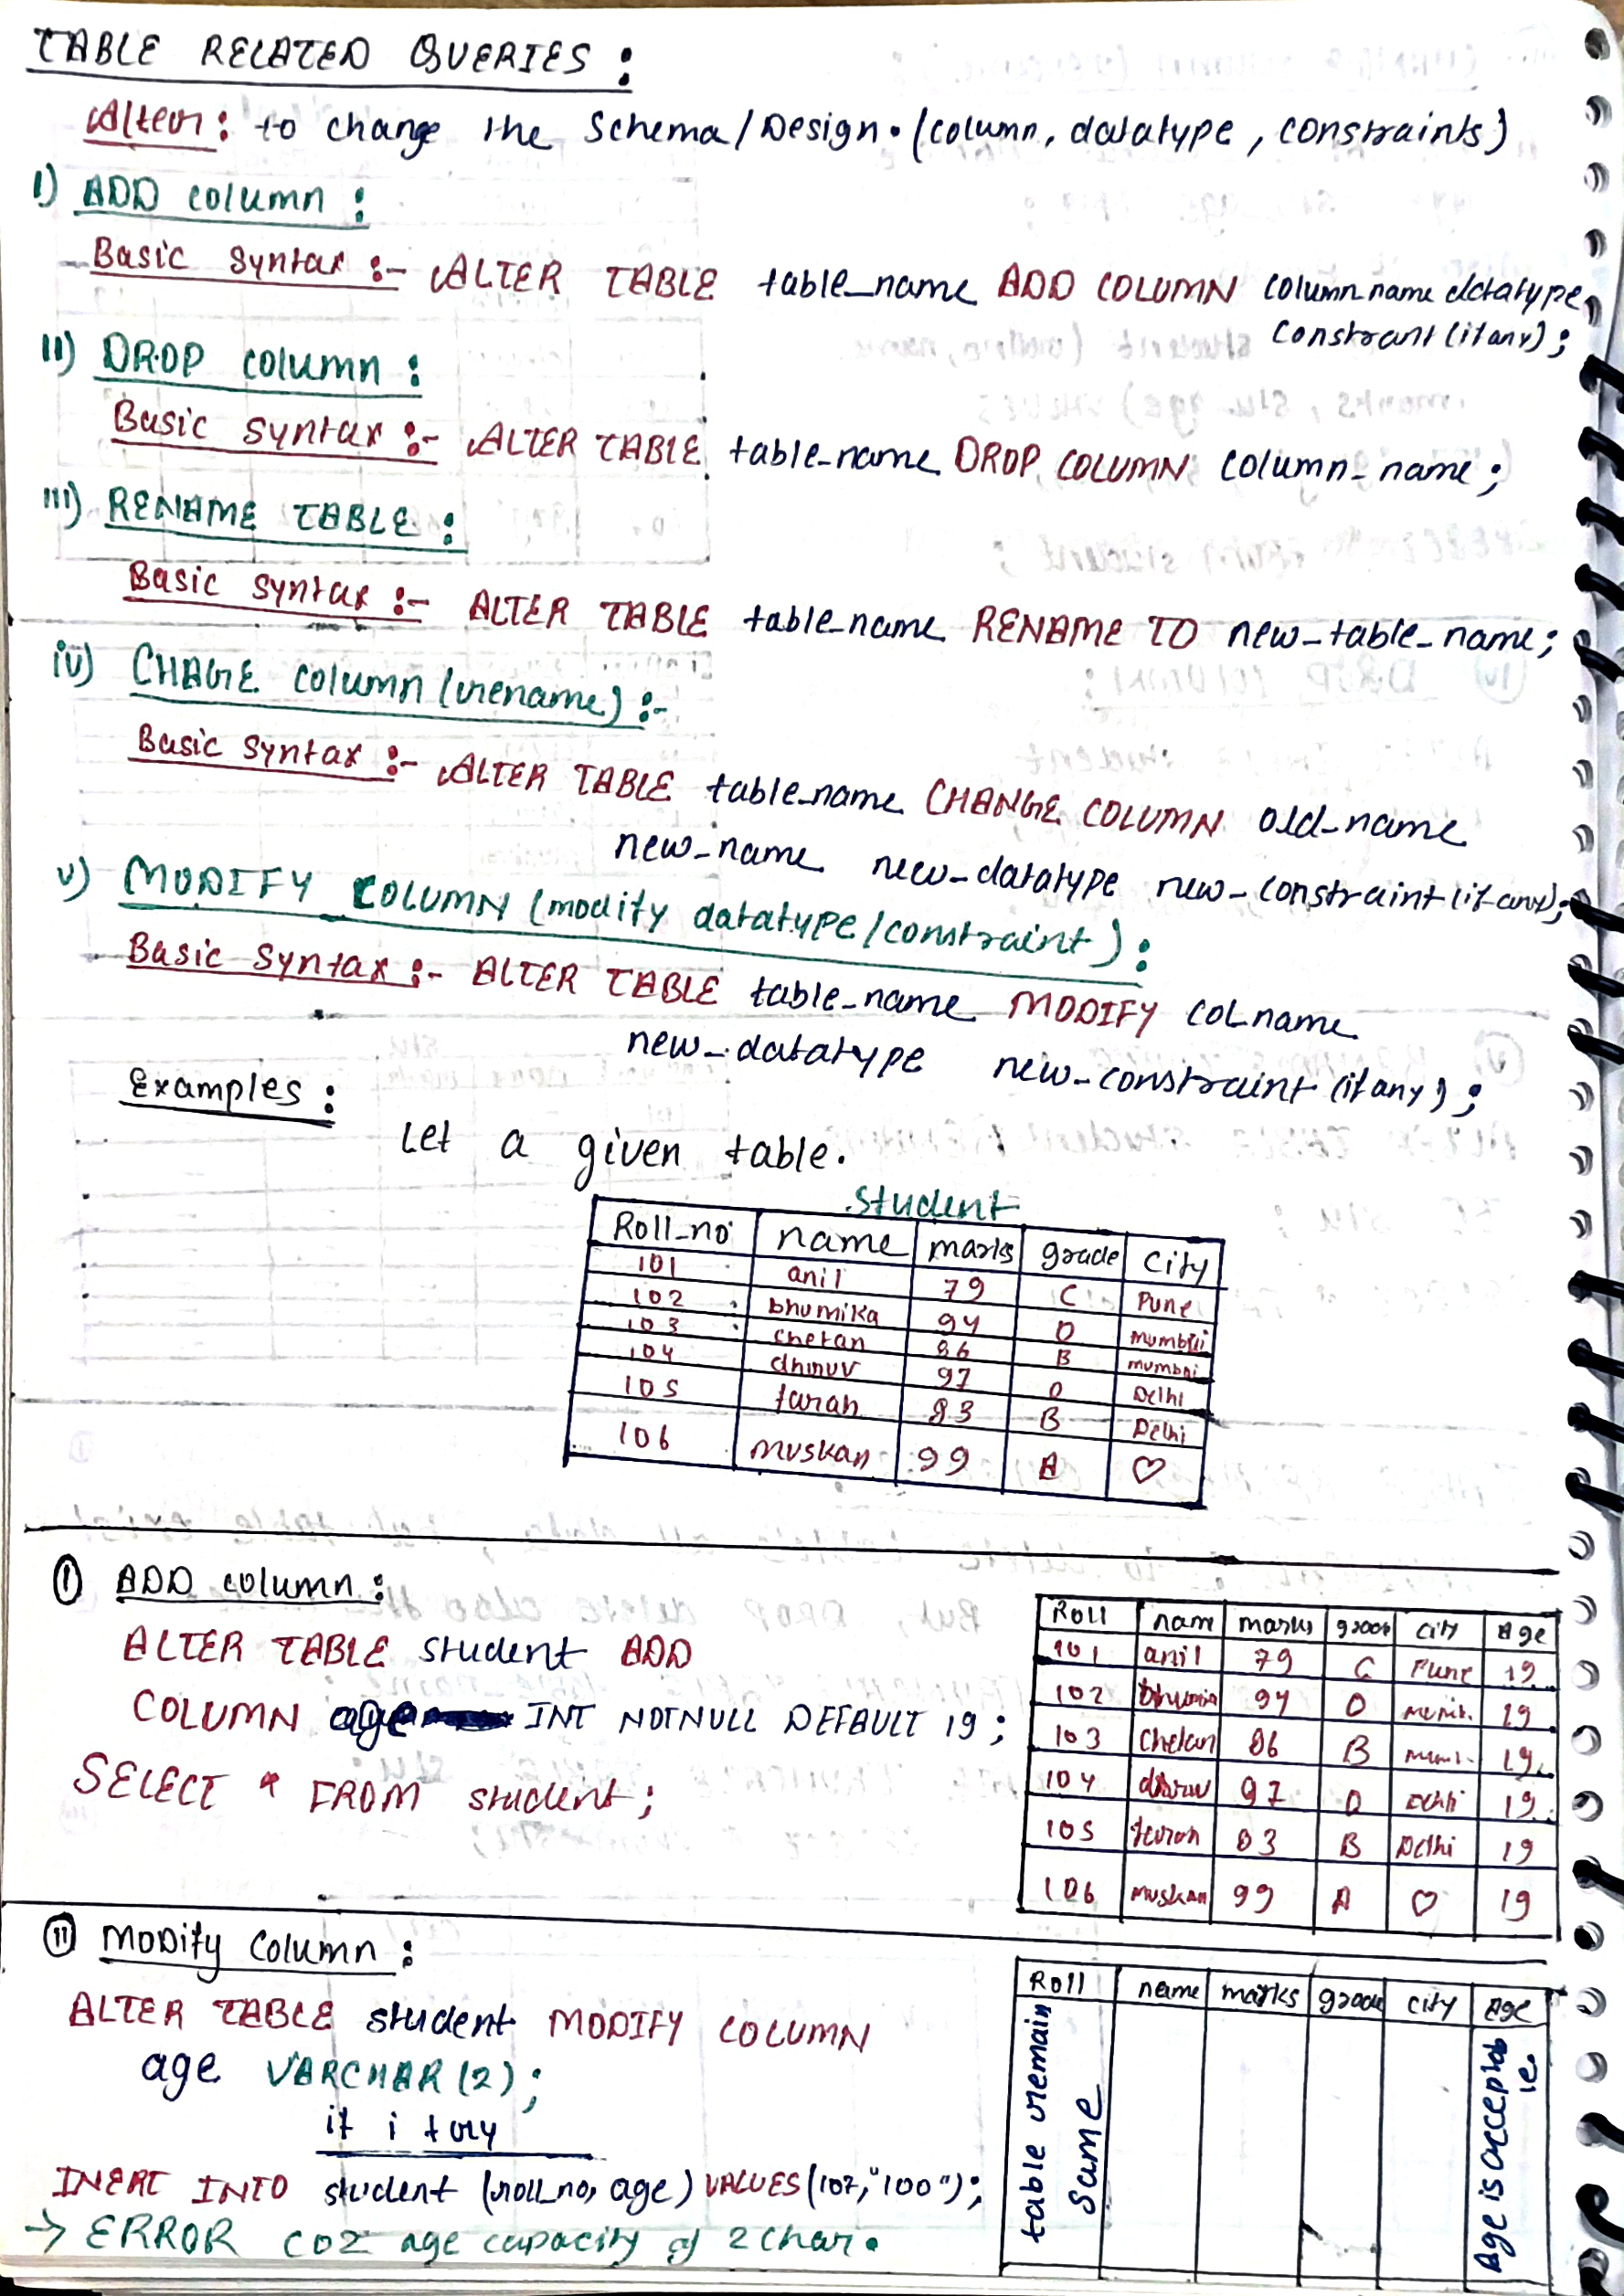 TABLE RELATED QUERIES :
Alter : to change the Schema/Design. (column, datatype, constraints)
I) ADD column :
Basic Syntax :- ALTER TABLE table_name ADD COLUMN column name datatype
constraint (if any) ;
II) DROP column :
Basic Syntax :- ALTER TABLE table_name DROP COLUMN column_name ;
III) RENAME TABLE :
Basic Syntax :- ALTER TABLE table_name RENAME TO new_table_name ;
iv) CHAGE column (rename) :-
Basic Syntax :- ALTER TABLE table_name CHANGE COLUMN old_name
new_name new_datatype new_constraint (if any) ;
v) MODIFY COLUMN (modify datatype/constraint) :
Basic Syntax :- ALTER TABLE table_name MODIFY col_name
new_datatype new_constraint (if any) ;
Examples :
Let a given table.
student
Roll_no name marks grade city
101 anil 79 C Pune
102 bhumika 94 O mumbai
103 chetan 86 B mumbai
104 dhruv 97 O Delhi
105 farah 83 B Delhi
106 muskan 99 A ♡
(I) ADD column :
ALTER TABLE student ADD
COLUMN age INT NOTNULL DEFAULT 19 ;
SELECT * FROM student ;
Roll nam marks grade city Age
101 anil 79 C Pune 19
102 94 O 19
103 Chetan 86 B 19
104 97 O 19
105 83 B Delhi 19
106 muskan 99 A ♡ 19
(II) Modify Column :
ALTER TABLE student MODIFY COLUMN
age VARCHAR (2) ;
if i try
INERT INTO student (roll_no, age) VALUES (107, "100") ;
→ ERROR coz age capacity of 2 char .
Roll name marks grade city Age
table remain
same
Age is acceptab
le.